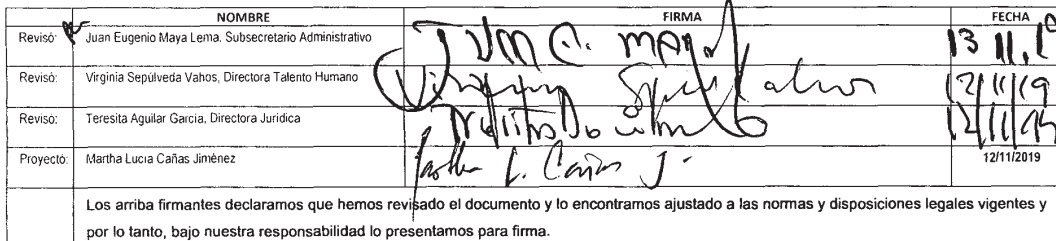 NOMBRE FIRMA FECHA
Revisó: Juan Eugenio Maya Lema. Subsecretario Administrativo
Revisó: Virginia Sepúlveda Vahos, Directora Talento Humano 12/11/19
Revisó: Teresita Aguilar García, Directora Jurídica 12/11/19
Proyectó: Martha Lucía Cañas Jiménez Martha L. Cañas J. 12/11/2019
Los arriba firmantes declaramos que hemos revisado el documento y lo encontramos ajustado a las normas y disposiciones legales vigentes y
por lo tanto, bajo nuestra responsabilidad lo presentamos para firma.